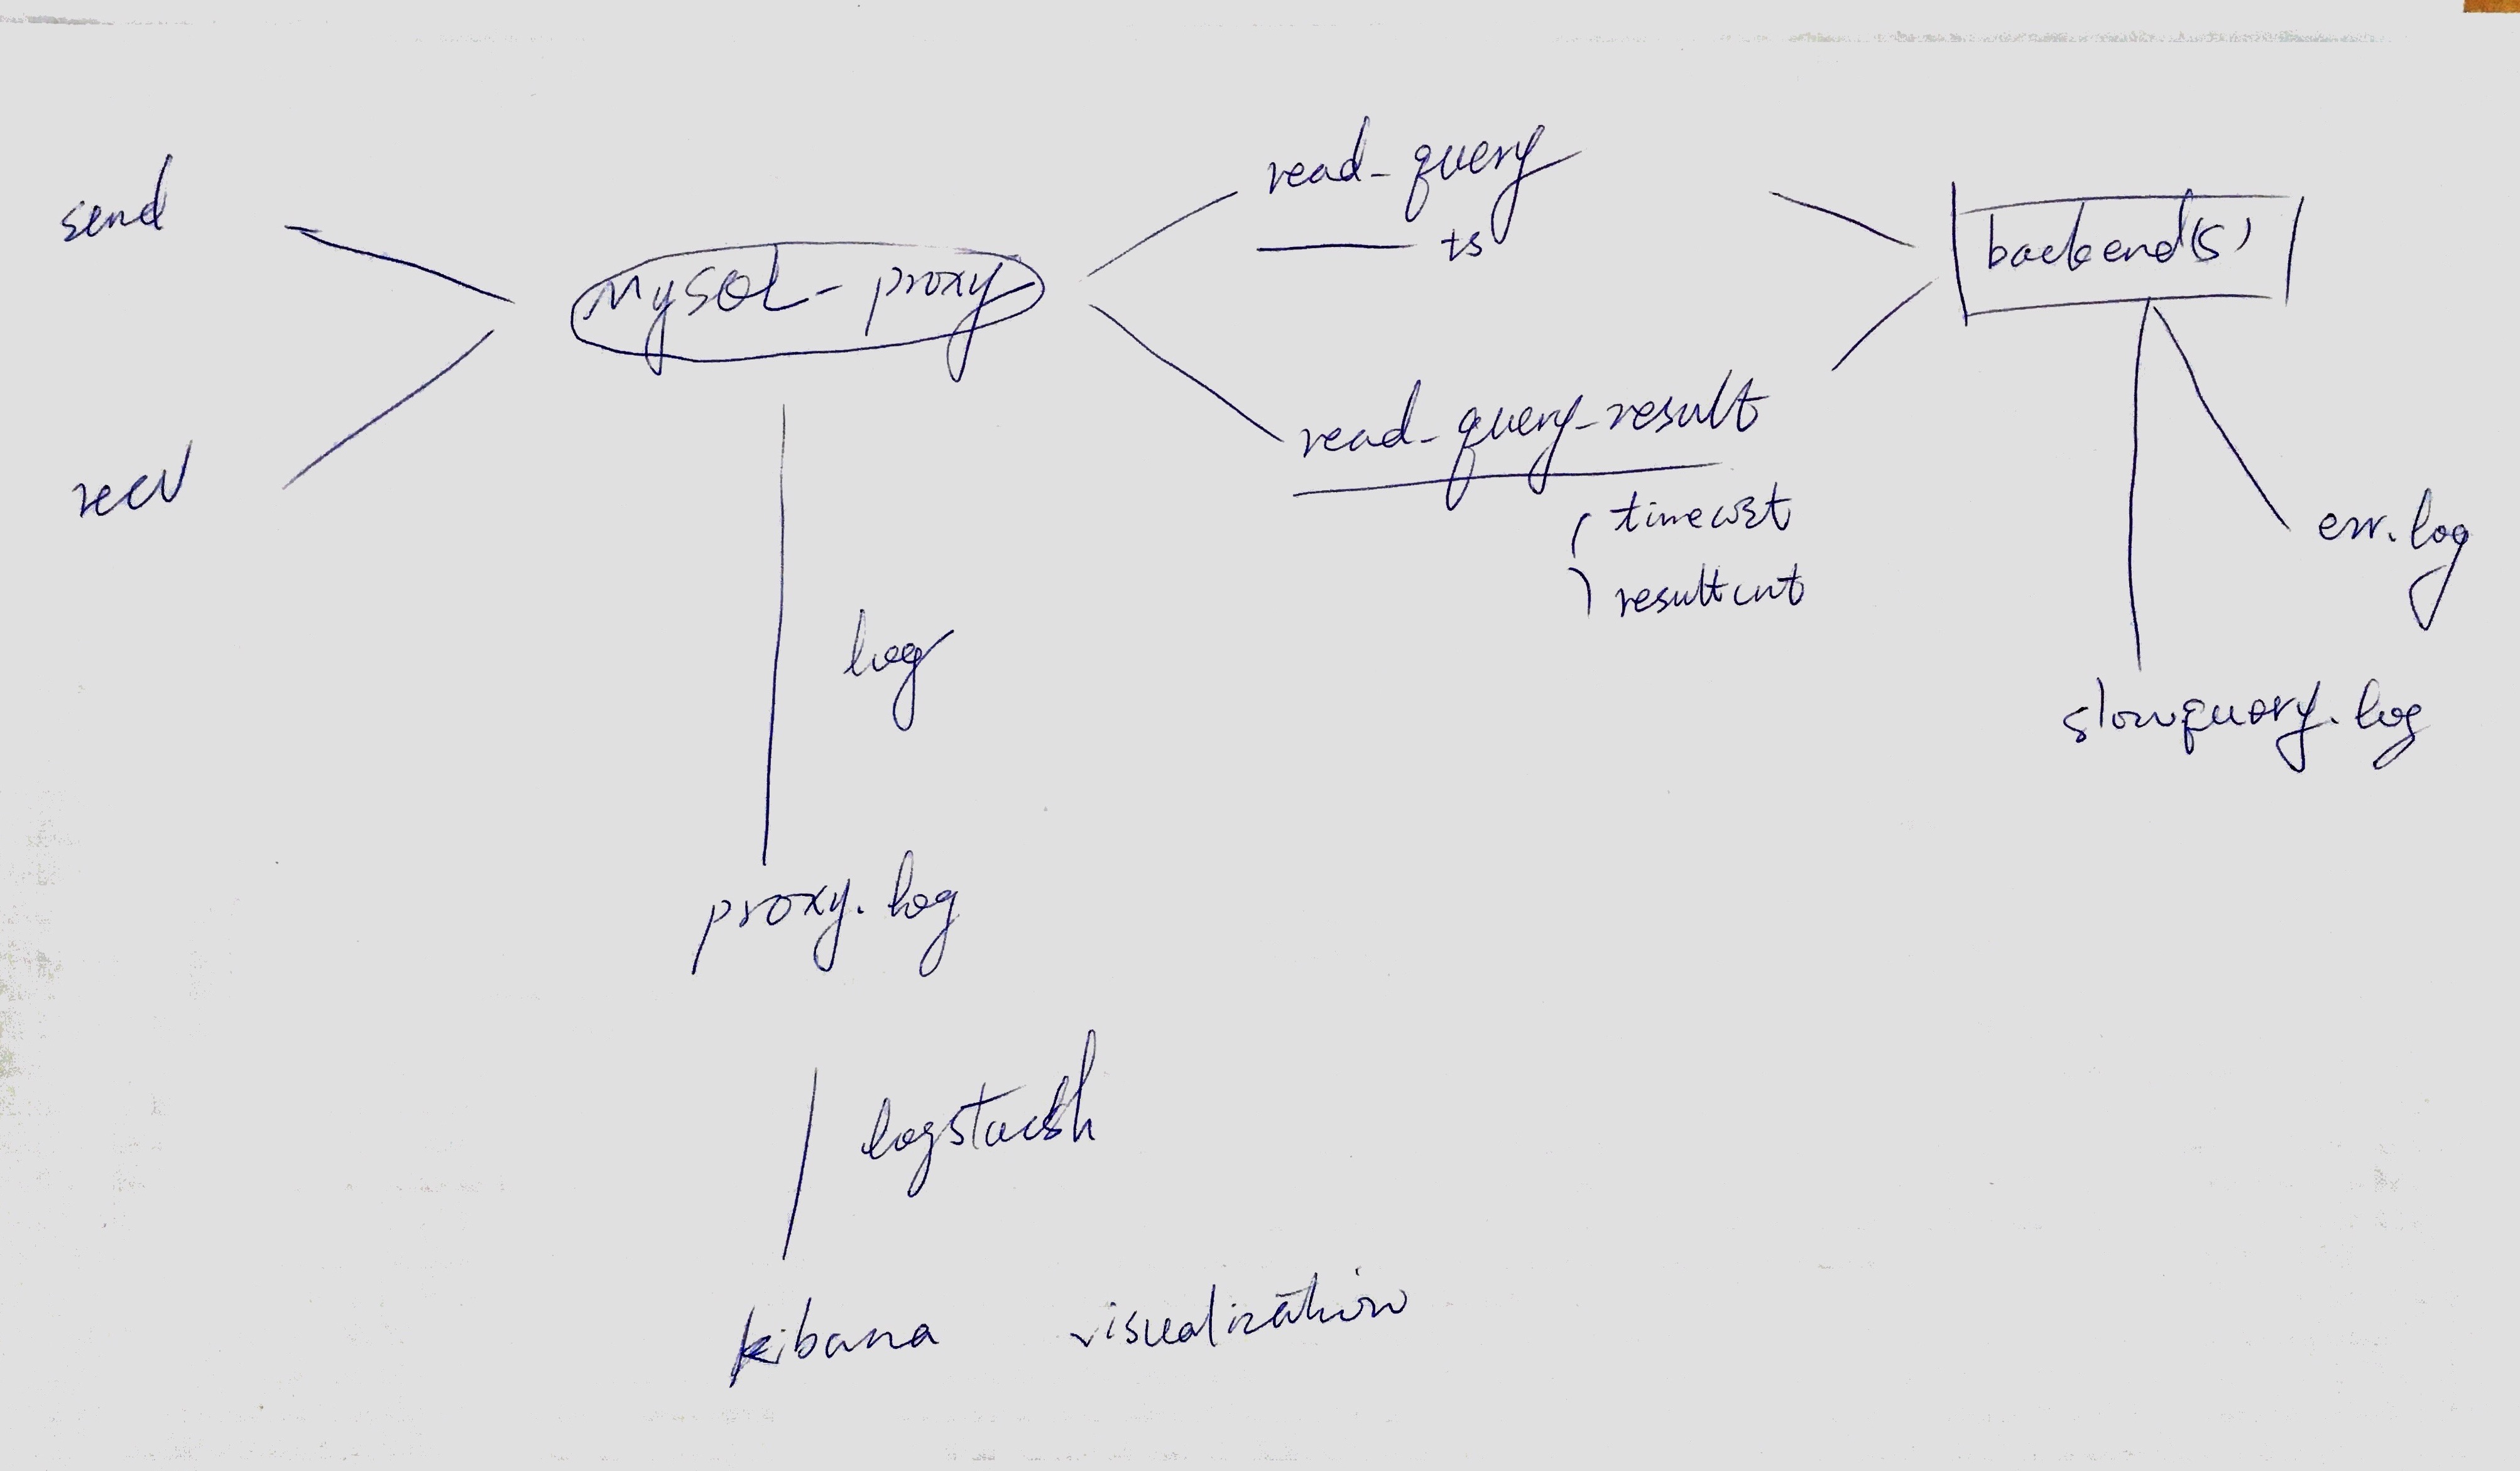 send
recv
MySQL-proxy
read_query
ts
read_query_result
timecost
resultcnt
backend(s)
err.log
slowquery.log
log
proxy.log
logstash
kibana visualization